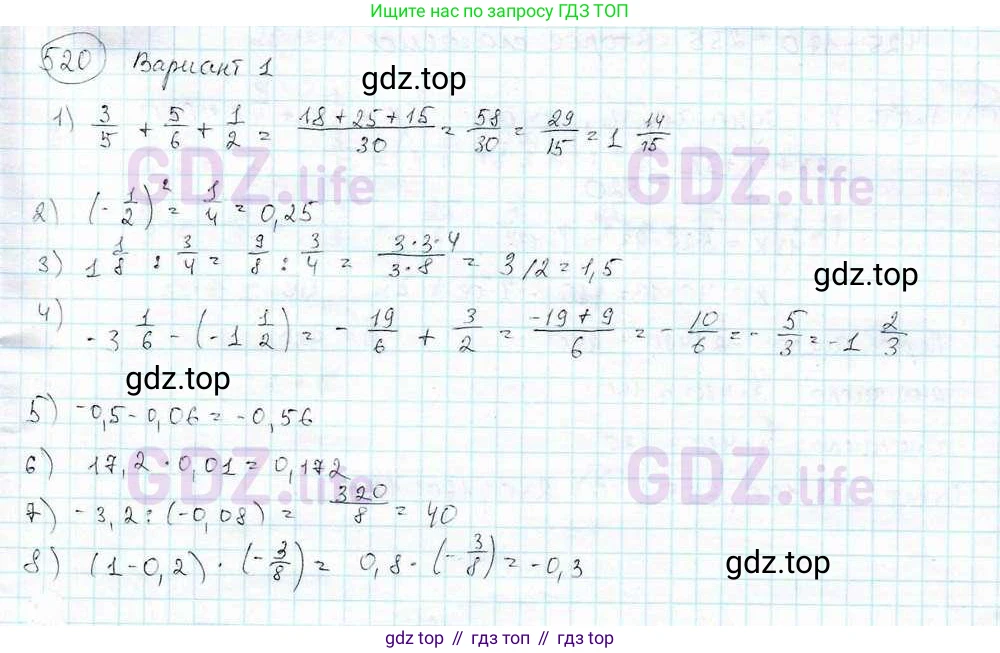 Ищите легко по запросу ГДЗ ТОП
520 Вариант 1
gdz.top
1) 3/5 + 5/6 + 1/2 = (18 + 25 + 15)/30 = 58/30 = 29/15 = 1 14/15
GDZ.life GDZ.life
2) (-1/2)² = 1/4 = 0,25
3) 1 1/8 : 3/4 = 9/8 : 3/4 = (3·3·4)/(3·8) = 3/2 = 1,5
gdz.top
4) -3 1/6 - (-1 1/2) = -19/6 + 3/2 = (-19 + 9)/6 = -10/6 = -5/3 = -1 2/3
gdz.top
5) -0,5 - 0,06 = -0,56
6) 17,2 · 0,01 = 0,172
GDZ.life GDZ.life
7) -3,2 : (-0,08) = 320/8 = 40
8) (1 - 0,2) · (-3/8) = 0,8 · (-3/8) = -0,3
gdz.top
gdz top // гдз топ // gdz top